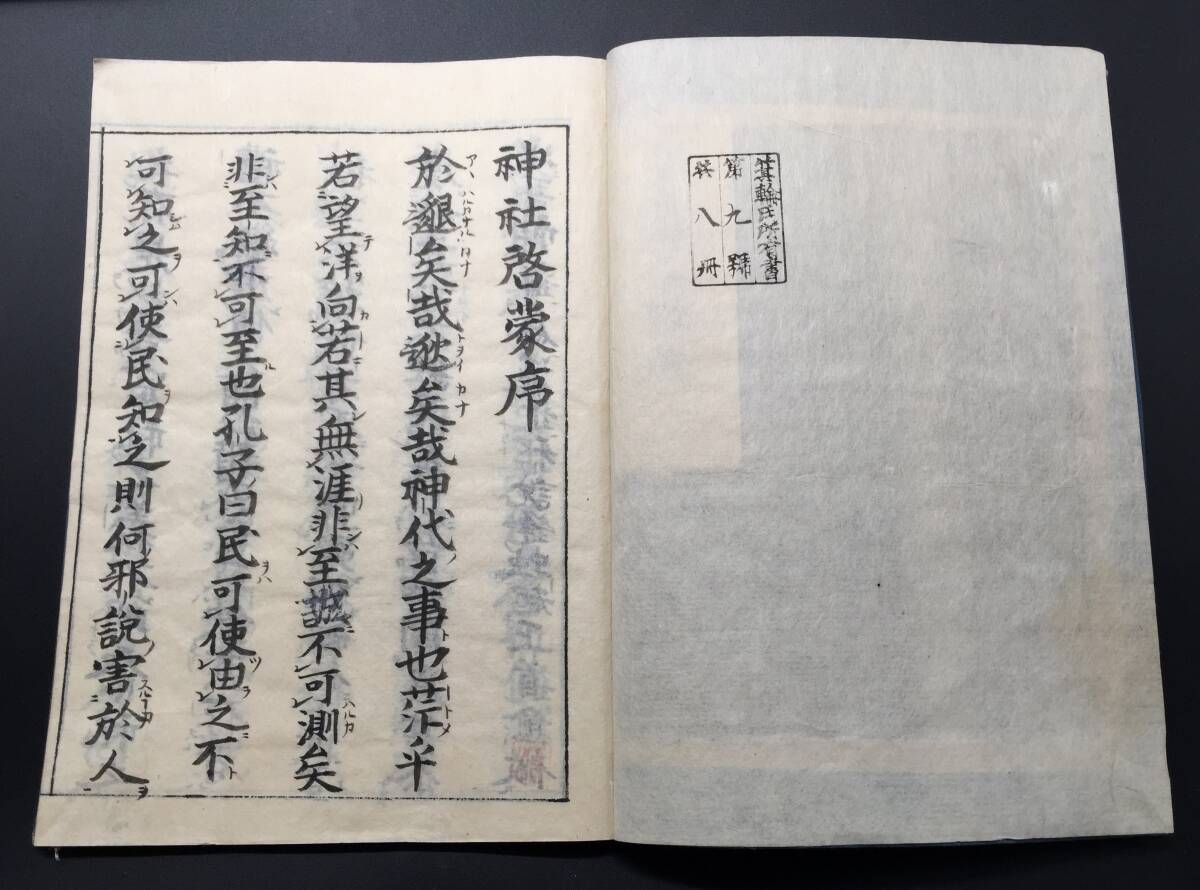 箕輪氏所有書
第九號
共八冊
神社啓蒙序
於邈矣哉逖矣哉神代之事也茫乎
若望洋向若其無涯非至誠不可測矣
非至知不可至也孔子曰民可使由之不
可知之可使民知之則何邪說害於人